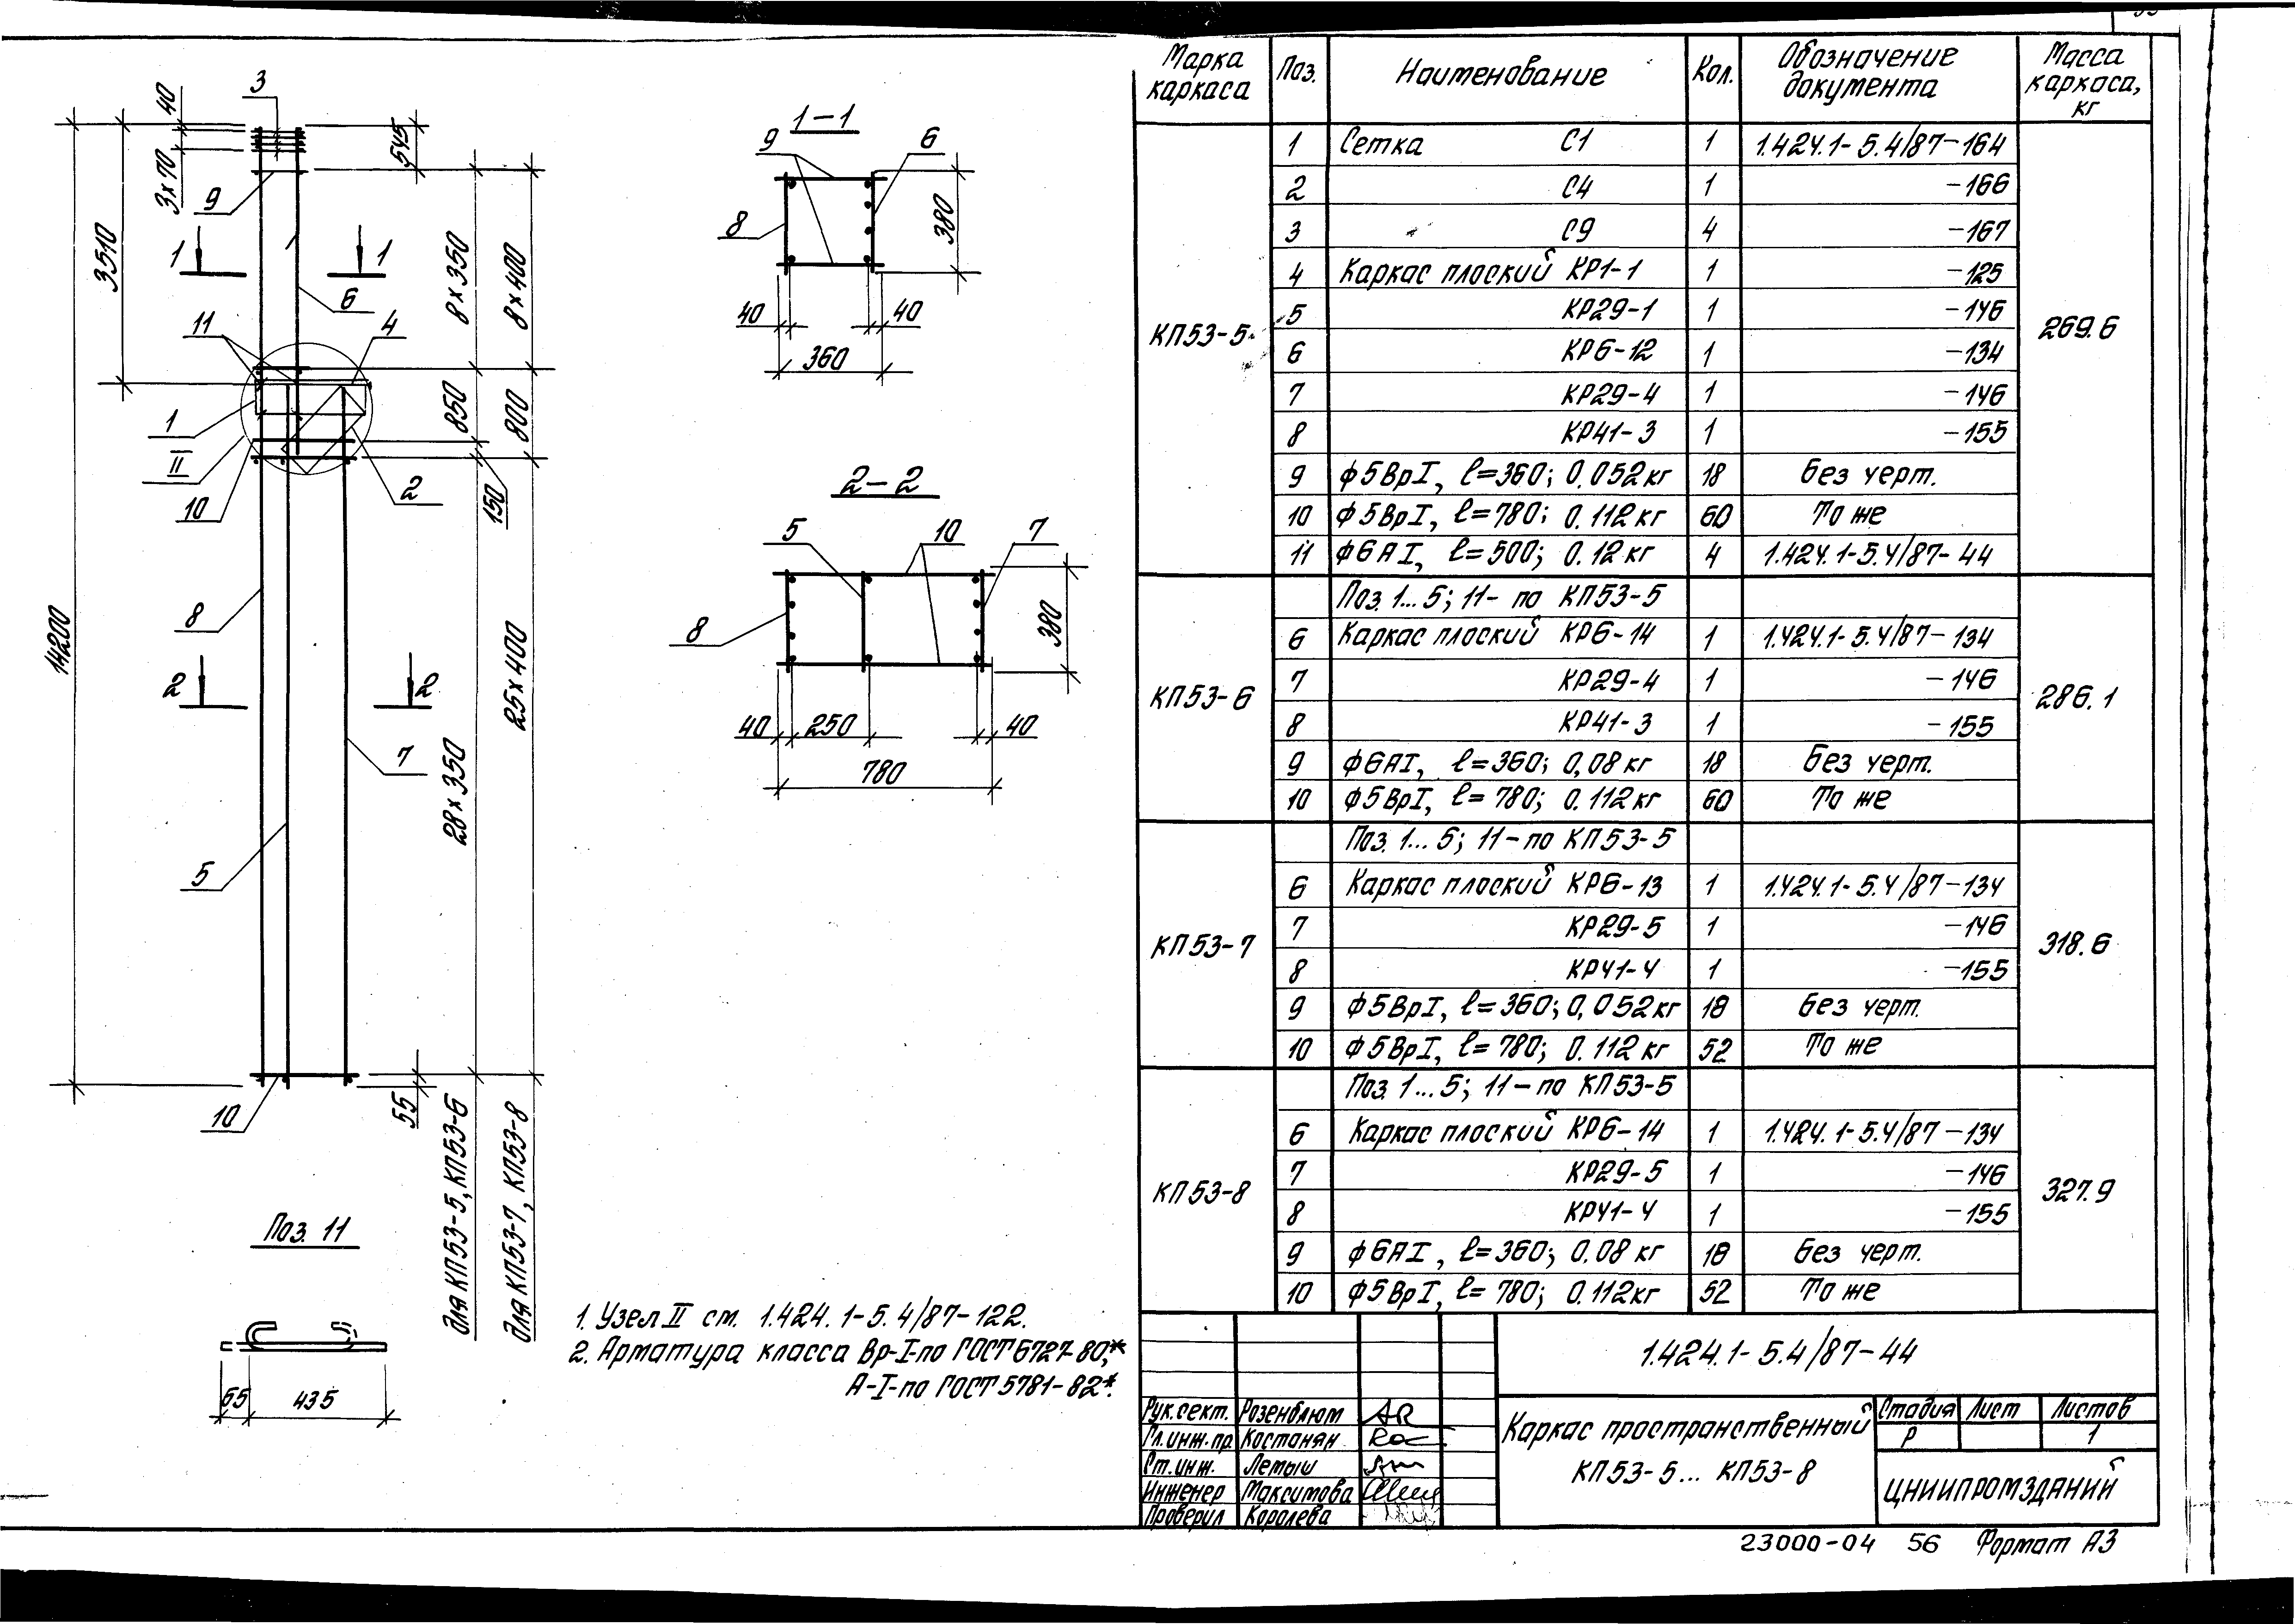 3
40
3×70
9
3510
545
1 1
6
11
4
8×350
8×400
1
II
10
2
850
800
150
14200
8
2 2
7
5
28×350
25×400
10
55
для КП53-5, КП53-6
для КП53-7, КП53-8
Поз. 11
65 435
1-1
9 6
8
380
40 40
360
2-2
5 10 7
8
380
40 250 40
780
1. Узел II см. 1.424.1-5.4/87-122.
2. Арматура класса Вр-I-по ГОСТ 6727-80*,
А-I-по ГОСТ 5781-82*.
Марка каркаса Поз. Наименование Кол. Обозначение документа Масса каркаса, кг
КП53-5 269.6
1 Сетка С1 1 1.424.1-5.4/87-164
2 С4 1 -166
3 С9 4 -167
4 Каркас плоский КР1-1 1 -125
5 КР29-1 1 -146
6 КР6-12 1 -134
7 КР29-4 1 -146
8 КР41-3 1 -155
9 ф5ВрI, ℓ=360; 0.052кг 18 Без черт.
10 ф5ВрI, ℓ=780; 0.112кг 60 То же
11 ф6АI, ℓ=500; 0.12кг 4 1.424.1-5.4/87-44
КП53-6 286.1
Поз. 1...5; 11- по КП53-5
6 Каркас плоский КР6-14 1 1.424.1-5.4/87-134
7 КР29-4 1 -146
8 КР41-3 1 -155
9 ф6АI, ℓ=360; 0,08кг 18 Без черт.
10 ф5ВрI, ℓ=780; 0.112кг 60 То же
КП53-7 318.6
Поз. 1...5; 11-по КП53-5
6 Каркас плоский КР6-13 1 1.424.1-5.4/87-134
7 КР29-5 1 -146
8 КР41-4 1 -155
9 ф5ВрI, ℓ=360; 0,052кг 18 Без черт.
10 ф5ВрI, ℓ=780; 0.112кг 52 То же
КП53-8 327.9
Поз. 1...5; 11-по КП53-5
6 Каркас плоский КР6-14 1 1.424.1-5.4/87-134
7 КР29-5 1 -146
8 КР41-4 1 -155
9 ф6АI, ℓ=360; 0.08кг 18 Без черт.
10 ф5ВрI, ℓ=780; 0.112кг 52 То же
1.424.1-5.4/87-44
Рук.сект. Розенблюм
Гл.инж.пр. Костанян
Ст.инж. Летыш
Инженер Максимова
Проверил Королева
Каркас пространственный
КП53-5... КП53-8
Стадия Лист Листов
Р 1
ЦНИИПРОМЗДАНИЙ
23000-04 56 Формат А3